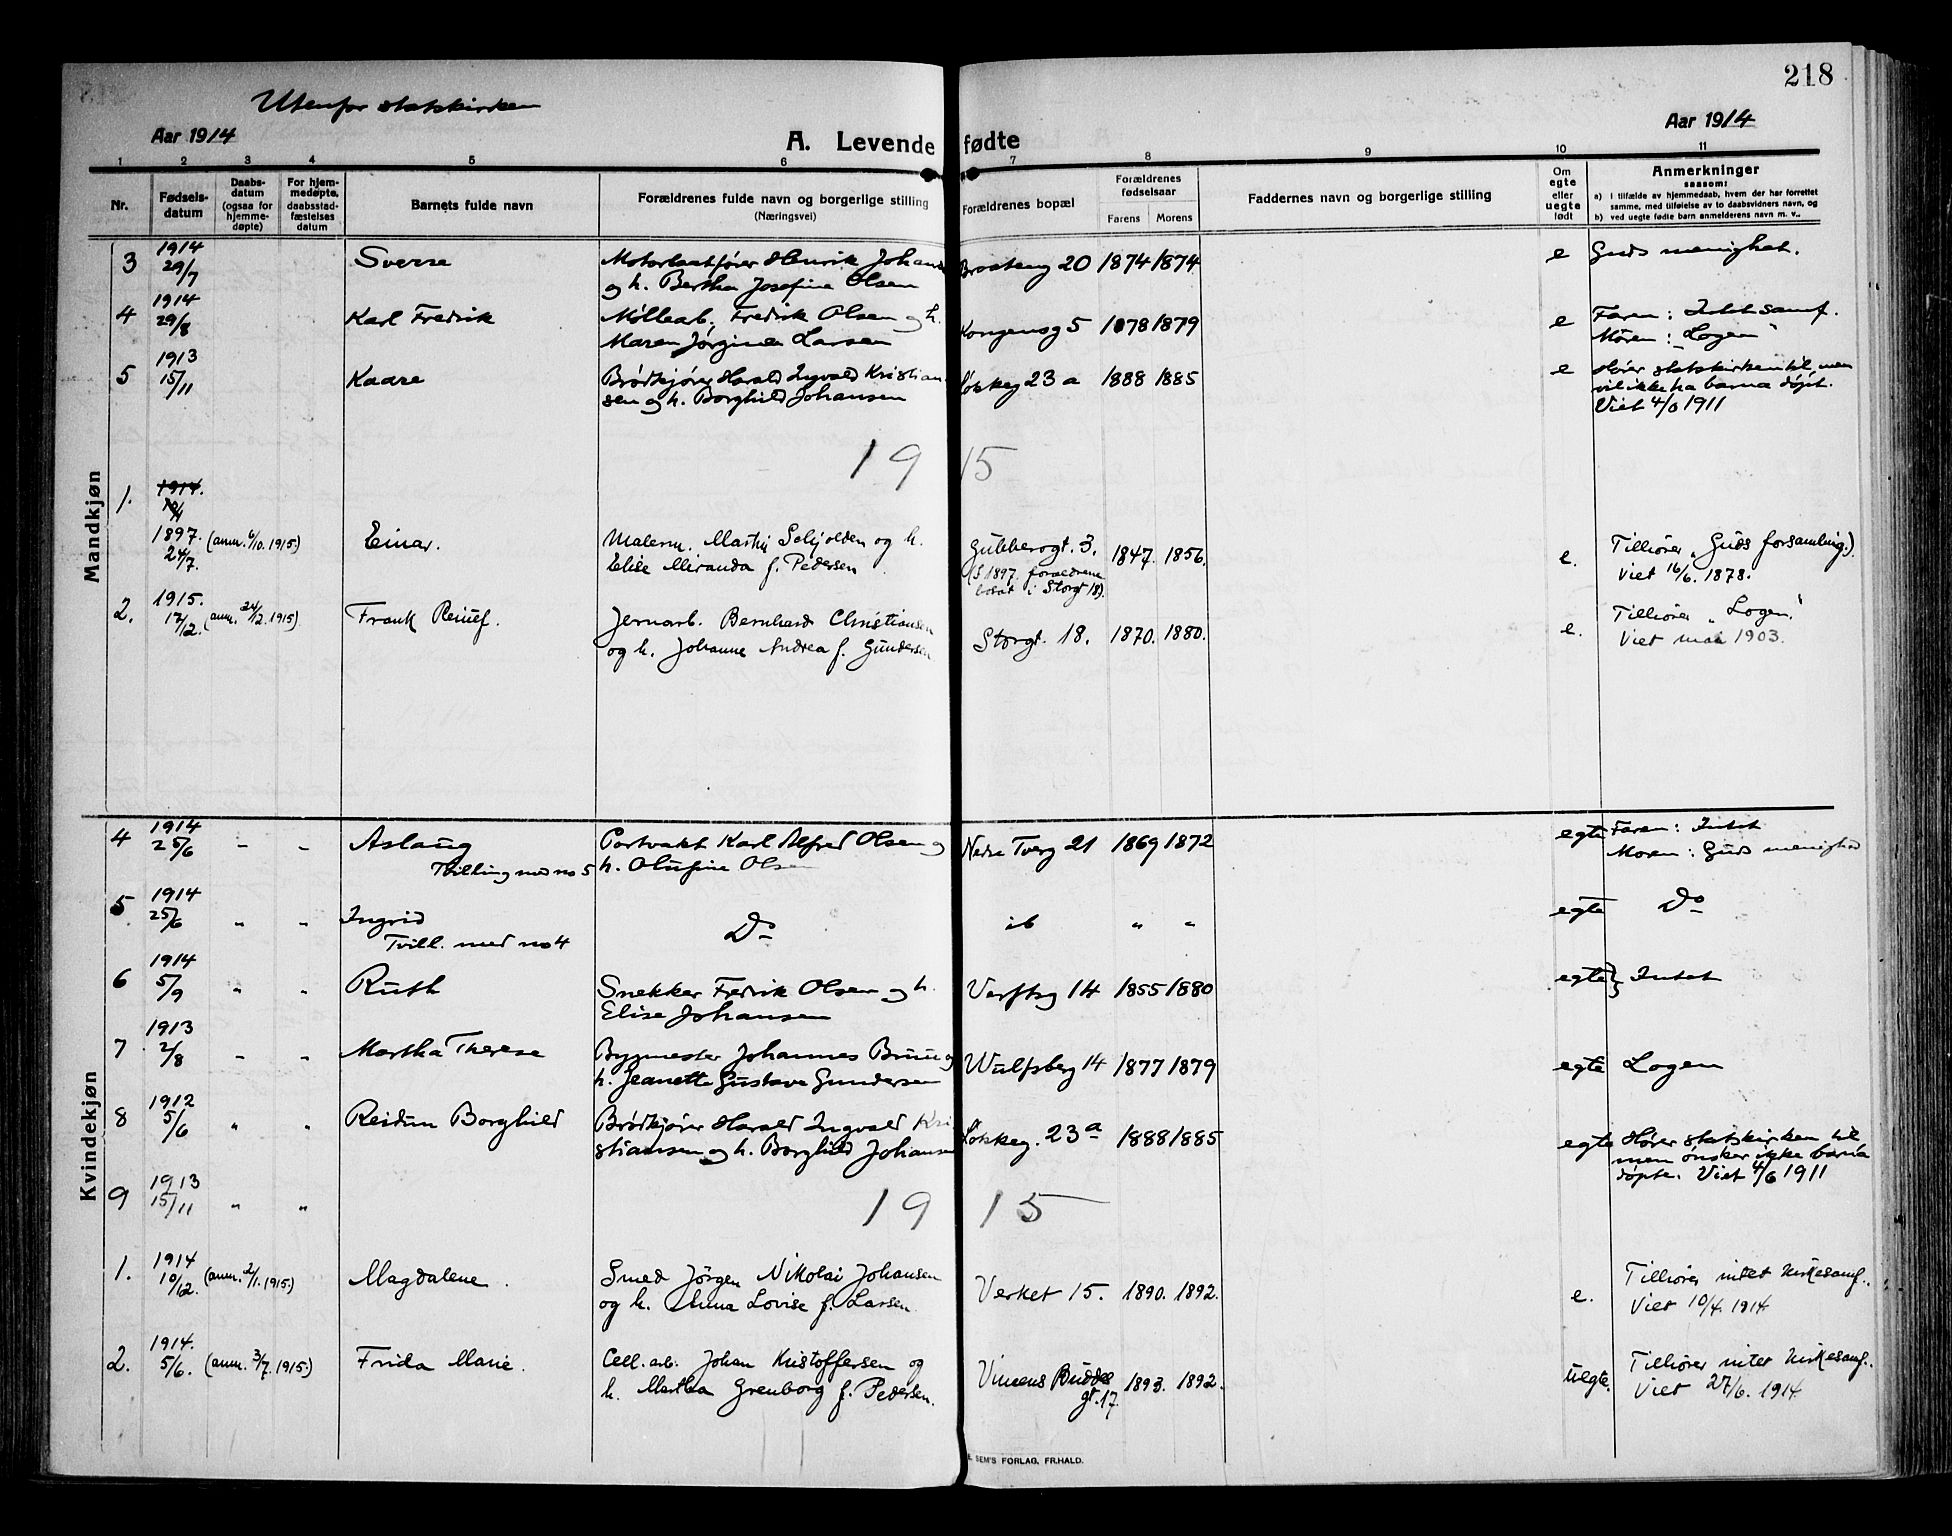 218
Utenfor statskirken
Aar 1914
A. Levende fødte
Aar 1914
1 2 3 4 5 6 7 8 9 10 11
Nr.
Fødsels-
datum
Daabs-
datum
(ogsaa for
hjemme-
døpte)
For hjem-
medøpte,
daabsstad-
fæstelses
datum
Barnets fulde navn
Forældrenes fulde navn og borgerlige stilling
(Næringsvei)
Forældrenes bopæl
Forældrenes
fødselsaar
Farens Morens
Faddernes navn og borgerlige stilling
Om
egte
eller
uegte
født
Anmerkninger
saasom:
a) i tilfælde av hjemmedaab, hvem der har forrettet
samme, med tilføielse av to daabsvidners navn, og
b) ved uegte fødte barn anmelderens navn m. v..
Mandkjøn
3 1914 29/7 Sverre Motorbaatfører Henrik Johan
og h. Bertha Josefine Olsen 20 1874 1874 e Guds menighet.
4 1914 29/8 Karl Fredrik Mølleab. Fredrik Olsen og h.
Maren Jørgine Larsen Kongensg 5 1878 1879 e Faren: Intet samf.
Moren: "Logen"
5 1913 15/11 Kaare Brødkjører Harald Ingvald Kristian-
sen og h. Borghild Johansen Løkkeg 23 a 1888 1885 e Hører statskirken til, men
vil ikke ha barna døpt.
Viet 4/6 1911
1915
1. 1914.
1897. 24/7. (anm. 6/10. 1915) Einar. Malerm. Martin Schjolden og h.
Elise Miranda f. Pedersen Gubberogt. 3.
(I 1897. forældrene
bosat i Storgt 18). 1847. 1856. e. Tilhører "Guds forsamling".)
Viet 16/6. 1878.
2. 1915. 12/12. (anm. 24/12. 1915) Frank Jernarb. Bernhard Christiansen
og h. Johanne Andrea f. Gundersen Storgt. 18. 1870. 1880. e. Tilhører "Logen".
Viet mai 1903.
Kvindekjøn
4 1914 25/6 - - Aslaug
Tvilling med no 5 Portvakt Karl Alfred Olsen og
h. Olufine Olsen Nedre Tverg 21 1869 1872 egte Faren: Intet
Moren: Guds menighed
5 1914 25/6 " " Ingrid
Tvill. med no 4 Do ib " " egte Do
6 1914 5/9 " " Ruth Snekker Fredrik Olsen og h.
Elise Johansen Verftsg 14 1855 1880 egte } Intet
7 1913 2/8 - " Martha Therese Bygmester Johannes Bruu og
h. Jeanette Gustava Gundersen Wulfsberg 14 1877 1879 egte Logen
8 1912 5/6 " " Reidun Borghild Brødkjører Harald Ingvald Kri-
stiansen og h. Borghild Johansen Løkkeg. 23 a 1888 1885 egte Hører statskirken til
men ønsker ikke barna
døpte. Viet 4/6 1911
9 1913 15/11 " "
1915
1. 1914 10/12. (anm. 2/1. 1915.) Magdalene. Smed Jørgen Nikolai Johansen
og h. Anna Lovise f. Larsen. Verket 15. 1890. 1892. e. Tilhører intet kirkesamf..
Viet 10/4. 1914
2. 1914. 5/6. (anm. 3/7. 1915.) Frida Marie. Cell. arb. Johan Kristoffersen og
h. Martha Grenborg f. Pedersen. Vincens Buddes
gt. 17. 1893. 1892. uegte. Tilhører intet kirkesamf..
Viet 27/6. 1914.
SEM'S FORLAG, FR.HALD.